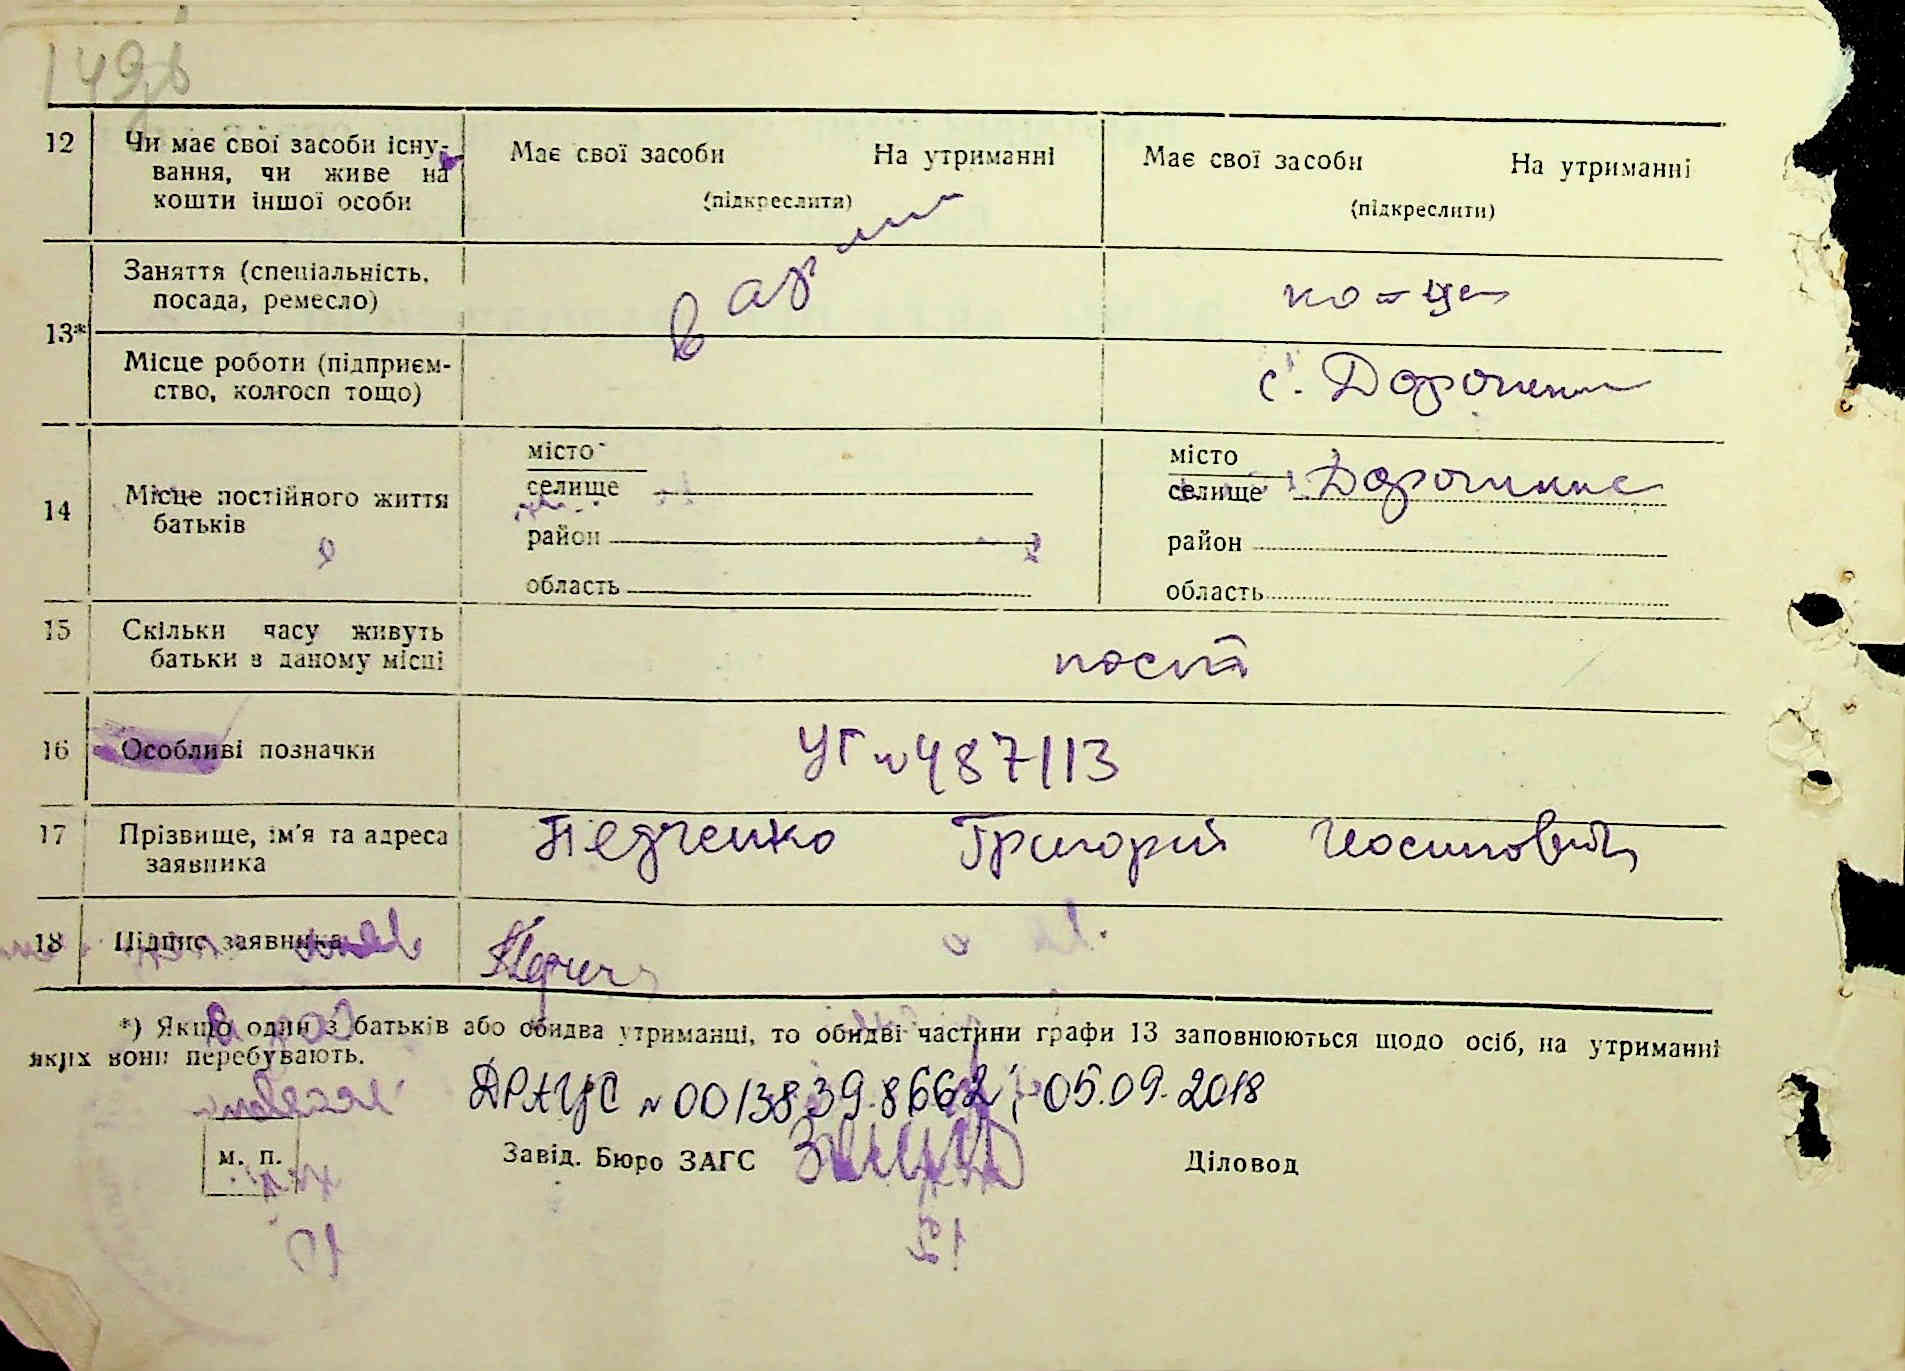 149
12 Чи має свої засоби існу- Має свої засоби На утриманні Має свої засоби На утриманні
вання, чи живе на (підкреслити) (підкреслити)
кошти іншої особи
13* Заняття (спеціальність, в армии
посада, ремесло)
Місце роботи (підприєм- с.
ство, колгосп тощо)
14 Місце постійного життя батьків
місто місто
селище селище
район район
область область
15 Скільки часу живуть пост
батьки в даному місці
16 Особливі позначки УГ № 487113
17 Прізвище, ім'я та адреса Педченко Григорій Иосипович
заявника
18 Підпис заявника
*) Якщо один з батьків або обидва утриманці, то обидві частини графи 13 заповнюються щодо осіб, на утриманні
яких вони перебувають.
ДРАЦС № 00138398662; 05.09.2018
м. п. Завід. Бюро ЗАГС Діловод